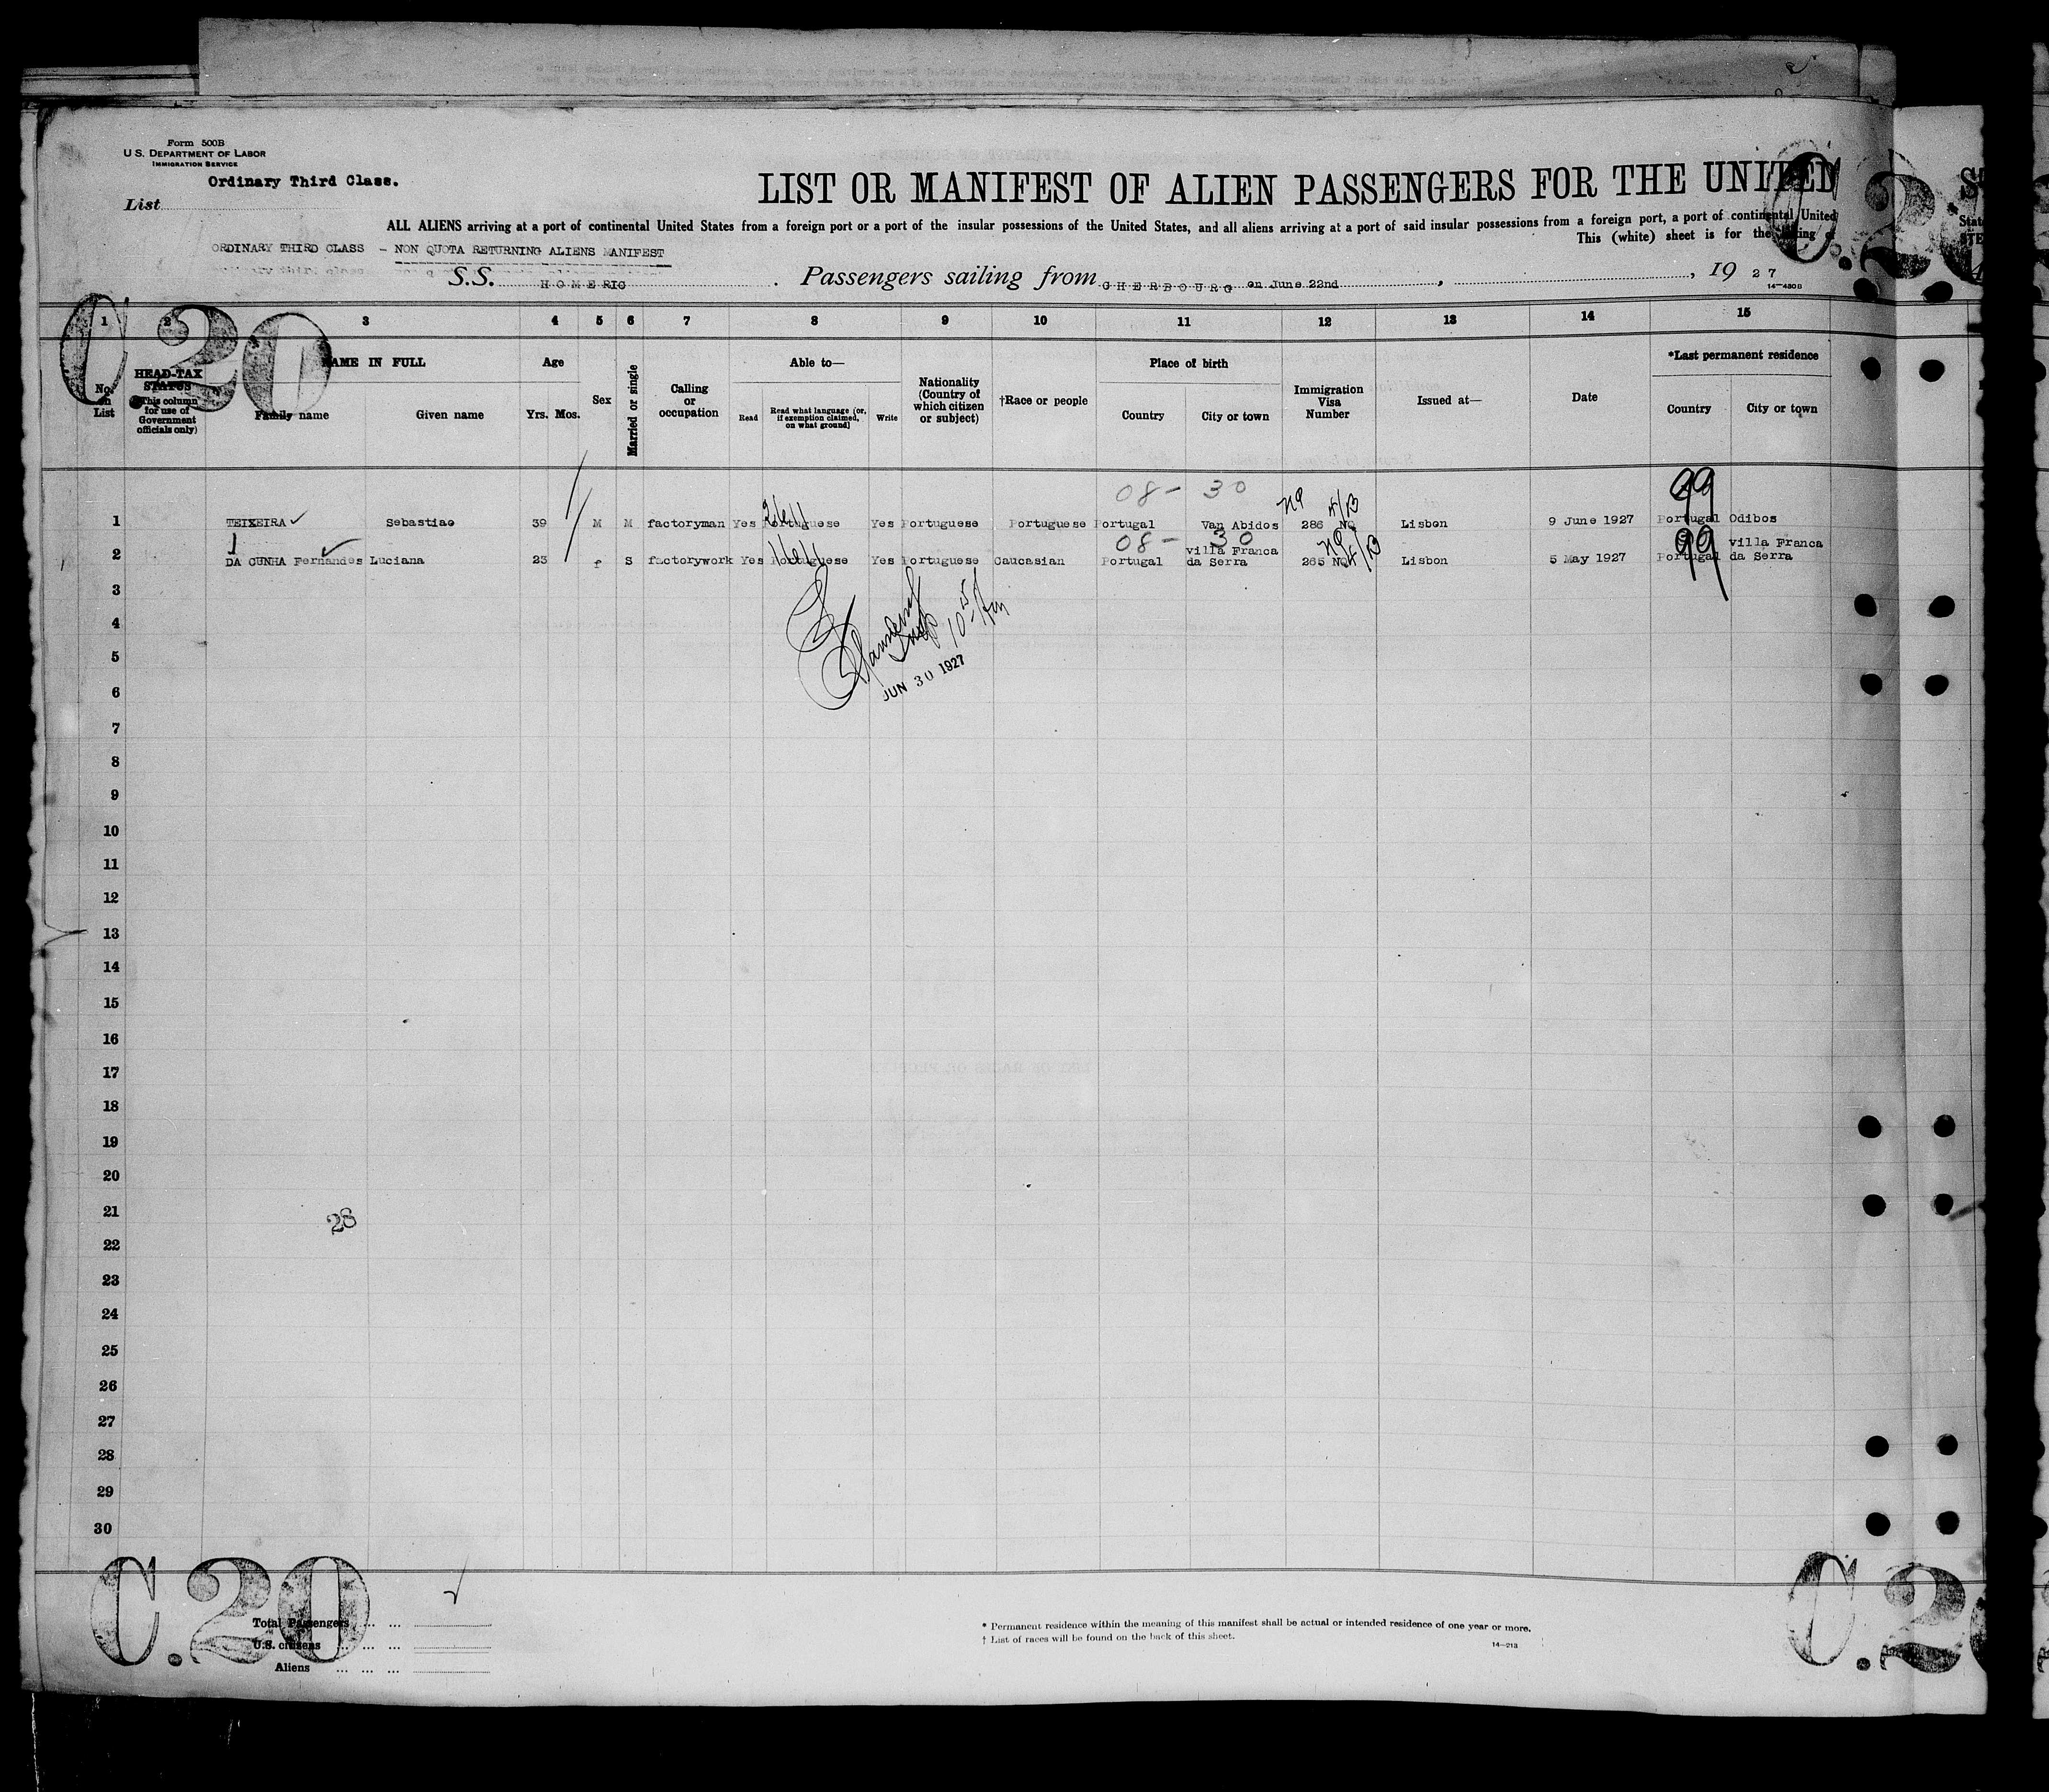 Form 500B
U.S. DEPARTMENT OF LABOR
IMMIGRATION SERVICE
Ordinary Third Class.
List
LIST OR MANIFEST OF ALIEN PASSENGERS FOR THE UNITED
ALL ALIENS arriving at a port of continental United States from a foreign port or a port of the insular possessions of the United States, and all aliens arriving at a port of said insular possessions from a foreign port, a port of continental United
This (white) sheet is for the
ORDINARY THIRD CLASS - NON QUOTA RETURNING ALIENS MANIFEST
S.S. HOMERIC. Passengers sailing from CHERBOURG on June 22nd, , 19 27
14-430B
C 20
1 2 3 4 5 6 7 8 9 10 11 12 13 14 15
No. on List
HEAD-TAX STATUS (This column for use of Government officials only)
NAME IN FULL
Family name Given name
Age
Yrs. Mos.
Sex
Married or single
Calling or occupation
Able to—
Read Read what language [or, if exemption claimed, on what ground] Write
Nationality (Country of which citizen or subject)
†Race or people
Place of birth
Country City or town
Immigration Visa Number
Issued at—
Date
*Last permanent residence
Country City or town
08 - 30 99
1 TEIXEIRA Sebastiao 39 M M factoryman Yes Portuguese Yes Portuguese Portuguese Portugal Van Abidos 286 NQ Lisbon 9 June 1927 Portugal Odibos
08 - 30 99
2 DA CUNHA Fernandes Luciana 23 f S factorywork Yes Portuguese Yes Portuguese Caucasian Portugal villa Franca da Serra 265 NQ Lisbon 5 May 1927 Portugal villa Franca da Serra
3
4
5
JUN 30 1927
6
7
8
9
10
11
12
13
14
15
16
17
18
19
20
21
28
22
23
24
25
26
27
28
29
30
C.20
Total Passengers ... ...
U.S. citizens ... ... ...
Aliens ... ... ...
* Permanent residence within the meaning of this manifest shall be actual or intended residence of one year or more.
† List of races will be found on the back of this sheet.
14-213